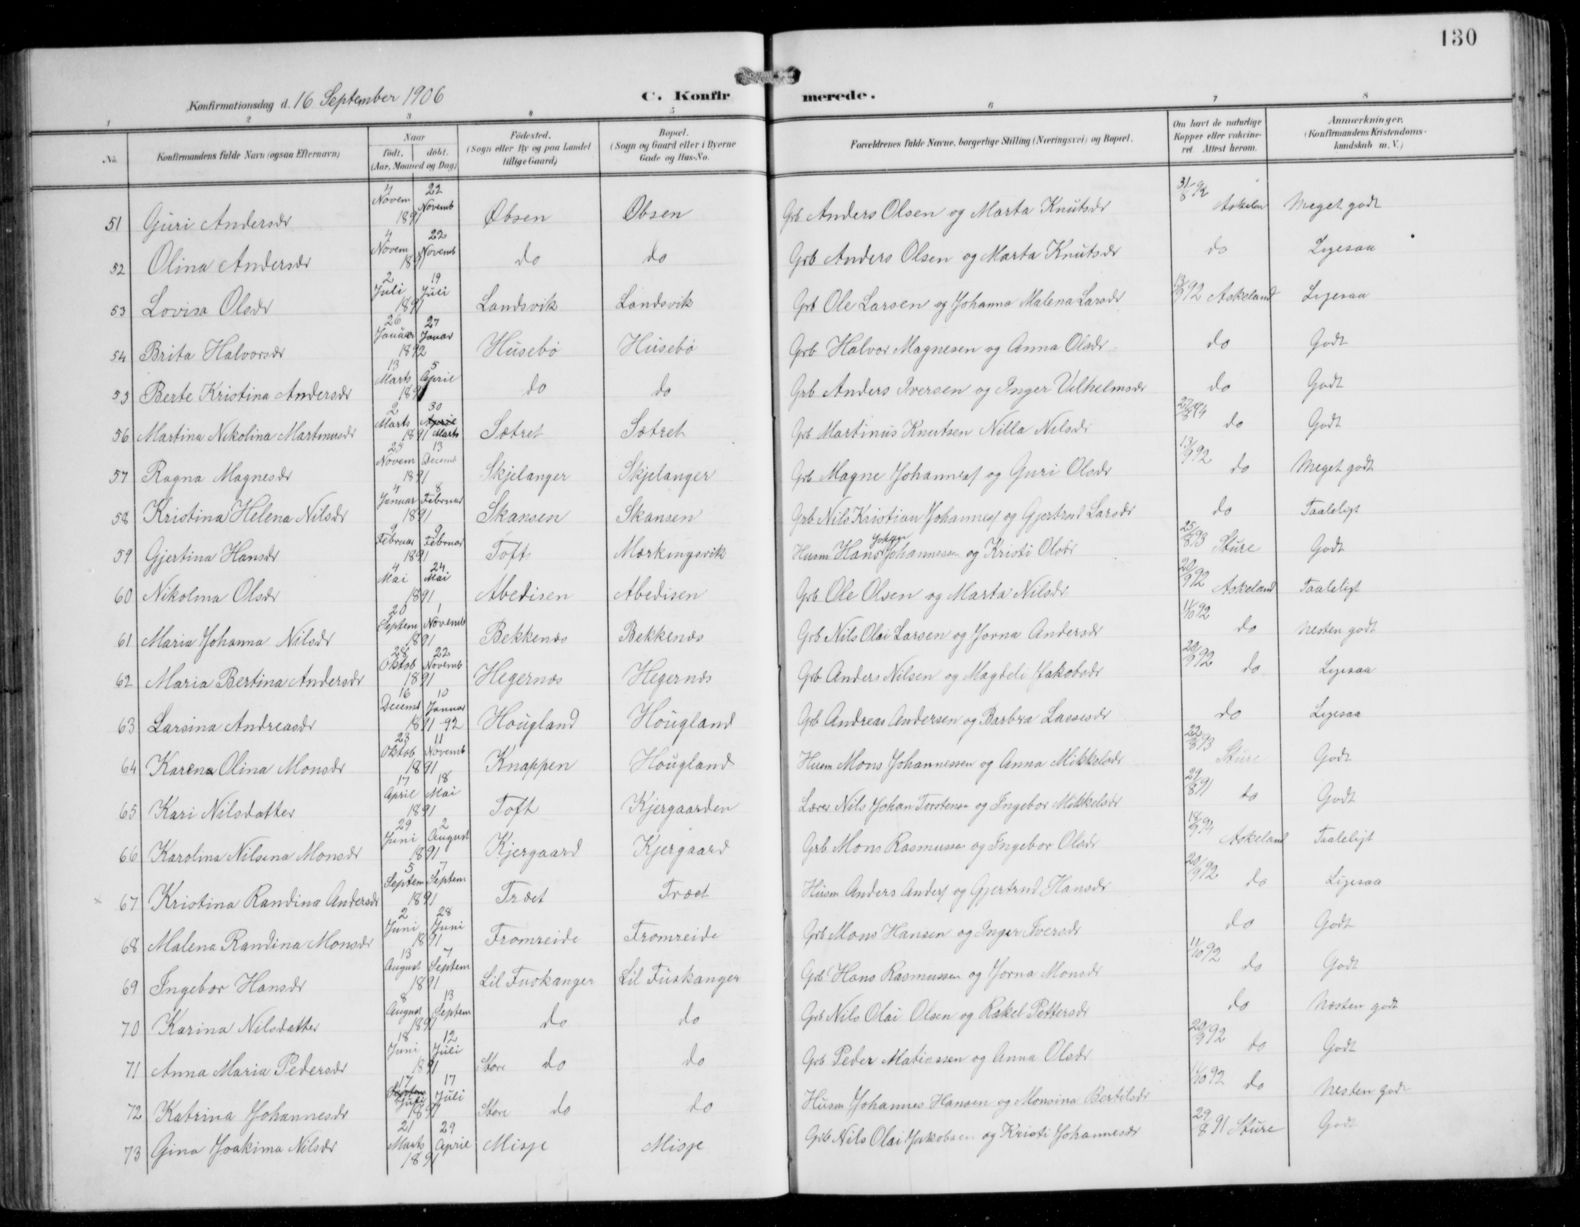 130
Konfirmationsdag d. 16 September 1906 C. Konfirmerede.
1 2 3 4 5 6 7 8
No. Konfirmandens fulde Navn (ogsaa Efternavn) Naar født. døbt. (Aar, Maaned og Dag) Fødested. (Sogn eller By og paa Landet tillige Gaard) Bopæl. (Sogn og Gaard eller i Byerne Gade og Hus-No. Forældrenes fulde Navne, borgerlige Stilling (Næringsvei) og Bopæl. Om havt de naturlige Kopper eller vakcineret. Attest herom. Anmerkninger. (Konfirmandens Kristendomskundskab m. V.)
51 Guri Andersdr 4 Novem 22 Novemb 1891 Øbsen Øbsen Grb Anders Olsen og Marta Knutsdr 31/8 92 Askeland Meget godt
52 Olina Andersdr 4 Novem 22 Novemb 1891 do do Grb Anders Olsen og Marta Knutsdr do Ligesaa
53 Lovisa Olsdr 2 Juli 19 Juli 1891 Landsvik Landsvik Grb Ole Larsen og Johanna Malena Larsdr 92 Askeland Ligesaa
54 Brita Halvorsdr 26 Januar 27 Januar 1892 Husebø Husebø Grb Halvor Magnesen og Anna Olsdr do Godt
55 Berte Kristina Andersdr 13 Marts 5 April 1891 do do Grb Anders Iversen og Inger Vilhelmsdr do Godt
56 Martina Nikolina Martinusdr 2 Marts 30 Marts 1891 Sætret Sætret Grb Martinus Knutsen Nilla Nilsdr do Godt
57 Ragna Magnesdr 25 Novem 13 Decemb 1891 Skjelanger Skjelanger Grb Magne Johannes og Guri Olsdr 92 do Meget godt
58 Kristina Helena Nilsdr 4 Januar 8 Februar 1891 Skansen Skansen Grb Nils Kristian Johannes og Gjertrud Larsdr do Taaleligt
59 Gjertina Hansdr 9 Februar 9 Februar 1891 Toft Mørkingsvik Husm Hans Johan Johannessen og Kristi Olsdr 25/8 93 Sture Godt
60 Nikolina Olsdr 4 Mai 24 Mai 1891 Abedisen Abedisen Grb Ole Olsen og Marta Nilsdr 20/9 92 Askeland Taaleligt
61 Maria Johanna Nilsdr 20 Septem 1 Novemb 1891 Bekkenæs Bekkenæs Grb Nils Olai Larsen og Jorna Andersdr 11/10 92 do Nesten godt
62 Maria Bertina Andersdr 28 Oktob 22 Novemb 1891 Hegernæs Hegernæs Grb Anders Nilsen og Magdeli Jakobsdr 20/9 92 do Ligesaa
63 Larsina Andreasdr 16 Decemb 10 Januar 1891-92 Hougland Hougland Grb Andreas Andersen og Barbra Lassesdr do Ligesaa
64 Karena Olina Monsdr 23 Oktob 11 Novemb 1891 Knappen Hougland Husm Mons Johannessen og Anna Mikkelsdr 22/8 93 Sture Godt
65 Kari Nilsdatter 17 April 18 Mai 1891 Toft Kjergaarden Lærer Nils Johan Torstensen og Ingebor Mikkelsdr 91 do Godt
66 Karolina Nilsina Monsdr 29 Juni 2 August 1891 Kjergaard Kjergaard Grb Mons Rasmussen og Ingebor Olsdr Askeland Taaleligt
67 Kristina Randina Andersdr 5 Septem 7 Septem 1891 Træet Træet Husm Anders Anders og Gjertrud Hansdr 20/9 92 do Ligesaa
68 Malena Randina Monsdr 2 Juni 28 Juni 1891 Fromreide Fromreide Grb Mons Hansen og Inger Iversdr do Godt
69 Ingebor Hansdr 13 August 7 Septem 1891 Lil Fuskanger Lil Fuskanger Grb Hans Rasmussen og Jorna Monsdr 11/10 92 do Godt
70 Karina Nilsdatter 8 August 13 Septem 1891 do do Grb Nils Olai Olsen og Rakel Pettersdr do Næsten godt
71 Anna Maria Pedersdr 18 Juni 12 Juli 1891 Store do do Grb Peder Matiassen og Anna Olsdr 20/9 92 do Godt
72 Katrina Johannesdr 17 Juli 17 Juli 1891 Store do do Husm Johannes Hansen og Monsina Bertelsdr 11/10 92 do Nesten godt
73 Gina Joakima Nilsdr 21 Marts 29 April 1891 Misje Misje Grb Nils Olai Jakobsen og Kristi Johannesdr 29/8 91 Sture Godt